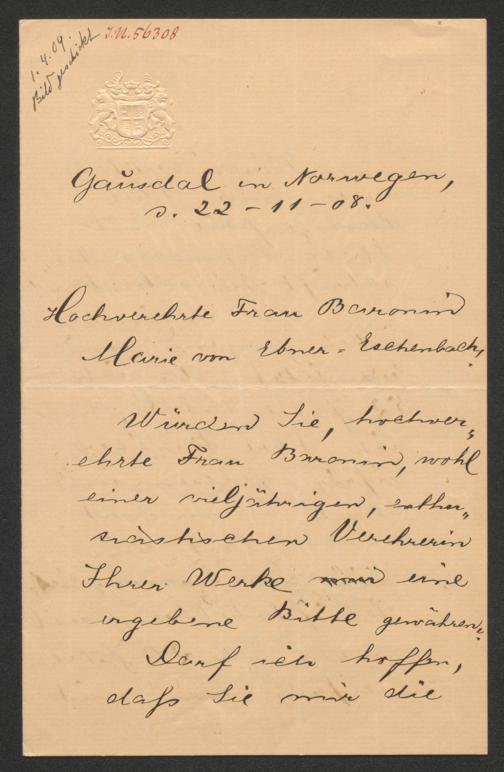 1. 4. 09.
Bild geschickt
I.N. 56308
Gausdal in Norwegen,
d. 22-11-08.
Hochverehrte Frau Baronin
Marie von Ebner-Eschenbach!
Würden Sie, hochver„
ehrte Frau Baronin, wohl
einer vieljährigen, enthu„
siastischen Verehrerin
Ihrer Werke eine
ergebene Bitte gewähren?
Darf ich hoffen,
daß Sie mir die